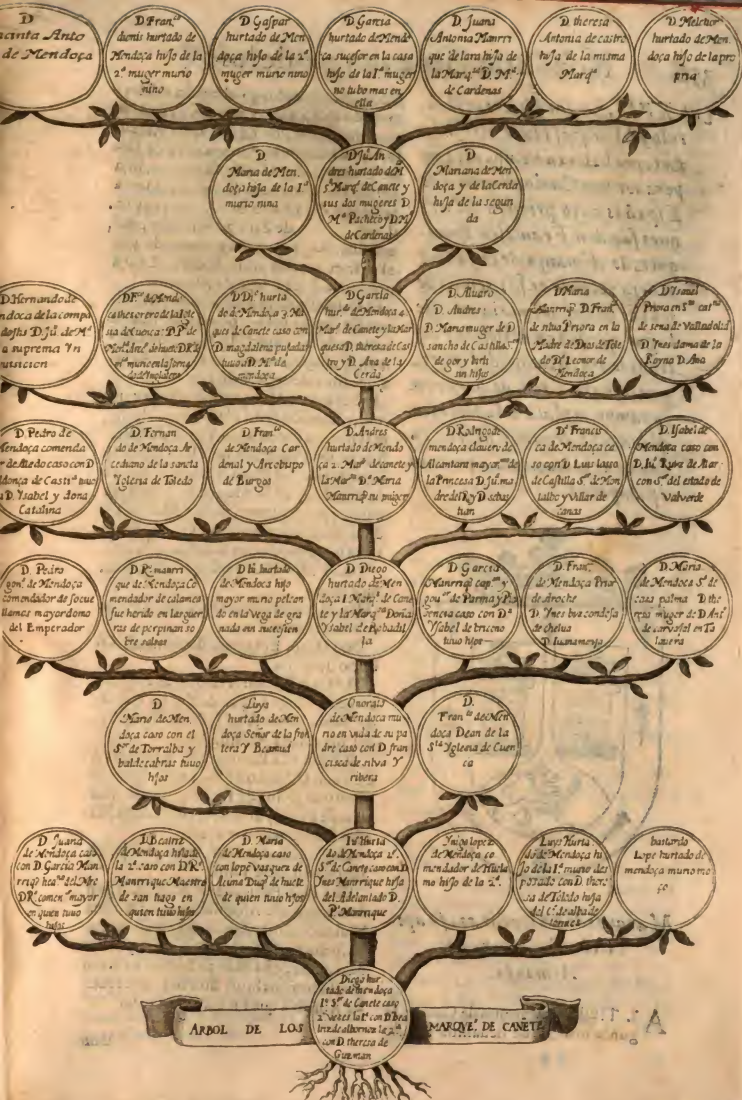 D
acinta Anto
de Mendoça
D Fran.co
dionis hurtado de
Mendoça hijo de la
2.a muger murio
nino
D Gaspar
hurtado de Men
doça hijo de la 2.a
muger murio nino
D Garcia
hurtado de Mendo
ca sucesor en la casa
hijo de la I.a muger
no tubo mas en
ella
D Juana
Antonia Manrri
que de lara hija de
la Marq.sa D. M.a
de Cardenas
D. theresa
Antonia de castro
hija de la misma
Marq.a
D Melchor
hurtado de Men
doça hijo de la pro
pria
D
Maria de Men
doça hija de la I.a
murio nina
D Ju.o An
dres hurtado de M
5.o Marq.s de Canete y
sus dos mugeres D
M.a Pacheco y D M.a
de Cardenas
D
Mariana de Men
doça y de la Cerda
hija de la segun
da
D. Hernando de
ndoca de la compa
de Jhs D. Ju.o de M.a
a suprema In
quisicion
ca thesorero de la Igle
sia de Cuenca
D Di.o hurta
do de Mendoça 3 Mar
ques de Canete caso con
D. magdalena
tuuo a D. M.a de
mendoça
D Garcia
hur.do de Mendoça 4
Mar.s de Canete y la Mar
quesa D. theresa de Cas
tro y D. Ana de la
Cerda
D. Aluaro
D. Andres
D. Maria muger de D
sancho de Castilla S.or
de gor
sin hijos
D Maria
Manrriq D. Fran.a
de silua Priora en la
Madre de Dios de Tole
do D.a Leonor de
Mendoça
D Ysabel
Priora en S.ta cat.na
de sena de Valladolid
D Ynes dama de la
Reyna D. Ana
D. Pedro de
Mendoça comenda
r de Aledo caso con D
tuuo
a D. Ysabel y dona
Catalina
D. Fernan
do de Mendoça Ar
cediano de la sancta
Yglesia de Toledo
D Fran.co
de Mendoça Car
denal y Arcobispo
de Burgos
D. Andres
hurtado de Mendo
ça 2. Mar.s de canete y
la Mar.sa D.a Maria
Manrriq su muger
D. Rodrigo de
mendoça clauero de
Alcantara mayor.mo de
la Princesa D. Ju.a ma
dre del Rey D sebas
tian
D.a Francis
ca de Mendoça ca
so con D Luis lasso
de Castilla S.or de Mon
talbo y Villar de
canas
D. Ysabel de
Mendoça caso con
D. Ju.o Ruiz de Alar
con S.or del estado de
Valverde
D. Pedro
gon.z de Mendoça
comendador de socue
llamos mayordomo
del Emperador
D. R.o manrri
que de Mendoça Co
mendador de calamea
fue herido en las guer
ras de perpinan so
bre salsas
D Lu hurtado
de Mendoça hijo
mayor murio pelean
do en la vega de gra
nada sin sucesion
D Diego
hurtado de Men
doça I. Marq.s de Cane
te y la Marq.sa Doña
Ysabel de Bobadil
la
D Garcia
Manrriq cap.an y
gou.or de Parma y Pla
sencia caso con D.a
Ysabel de briceno
tuuo hijos
D. Fran.co
de Mendoça Prior
de aroche
D Ynes condesa
de chelua
D Juana monja
D. Maria
de Mendoça S.a de
casa palma D the
resa muger de D. Ant.o
de carvajal en Ta
lauera
D
Maria de Men
doça caso con el
S.or de Torralba y
baldecabras tuuo
hijos
Luys
hurtado de Men
doça Señor de la fron
tera Y Beamud
Onorato
de Mendoca mu
rio en vida de su pa
dre caso con D fran
cisca de silva Y
ribera
D.
Fran.co de Men
doça Dean de la
S.ta Yglesia de Cuen
ca
D Juana
de Mendoça caso
con D Garcia Man
rriq.z
D R.o comen mayor
en quien tuuo
hijos
D. Beatriz
de Mendoça hija de
la 2.a caso con D R.o
Manrrique Maestre
de san tiago en
quien tuuo hijos
D. Maria
de Mendoça caso
con lope vasquez de
Acuna Duq.e de huete
de quien tuuo hijos
Ju.o Hurta
do de Mendoça 2.o
S.or de Canete caso con D
Ynes Manrrique hija
del Adelantado D.
P.o Manrrique
Ynigo lopez
de Mendoça co
mendador de Huela
mo hijo de la 2.a
Luys Hurta
do de Mendoça hi
jo de la I.a murio des
posado con D. there
sa de Toledo hija
del C.de de alba de
tormes
bastardo
Lope hurtado de
mendoça murio mo
ço
Diego hur
tado de Mendoça
I.o S.or de Canete caso
2 veces la I.a con D Bea
triz de albornoz la 2.a
con D theresa de
Guzman
ARBOL DE LOS MARQVE.S DE CAÑETE